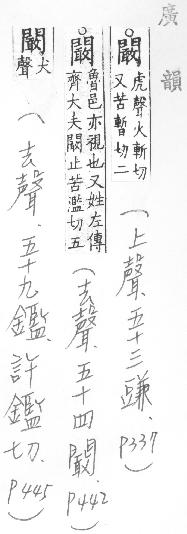 廣韻
○闞虎聲火斬切又苦暫切二（上聲、五十三豏、P337）
○闞魯邑亦視也又姓左傳齊大夫闞止苦濫切五（去聲、五十四闞、P442）
闞犬聲（去聲、五十九鑑、許鑑切、P445）